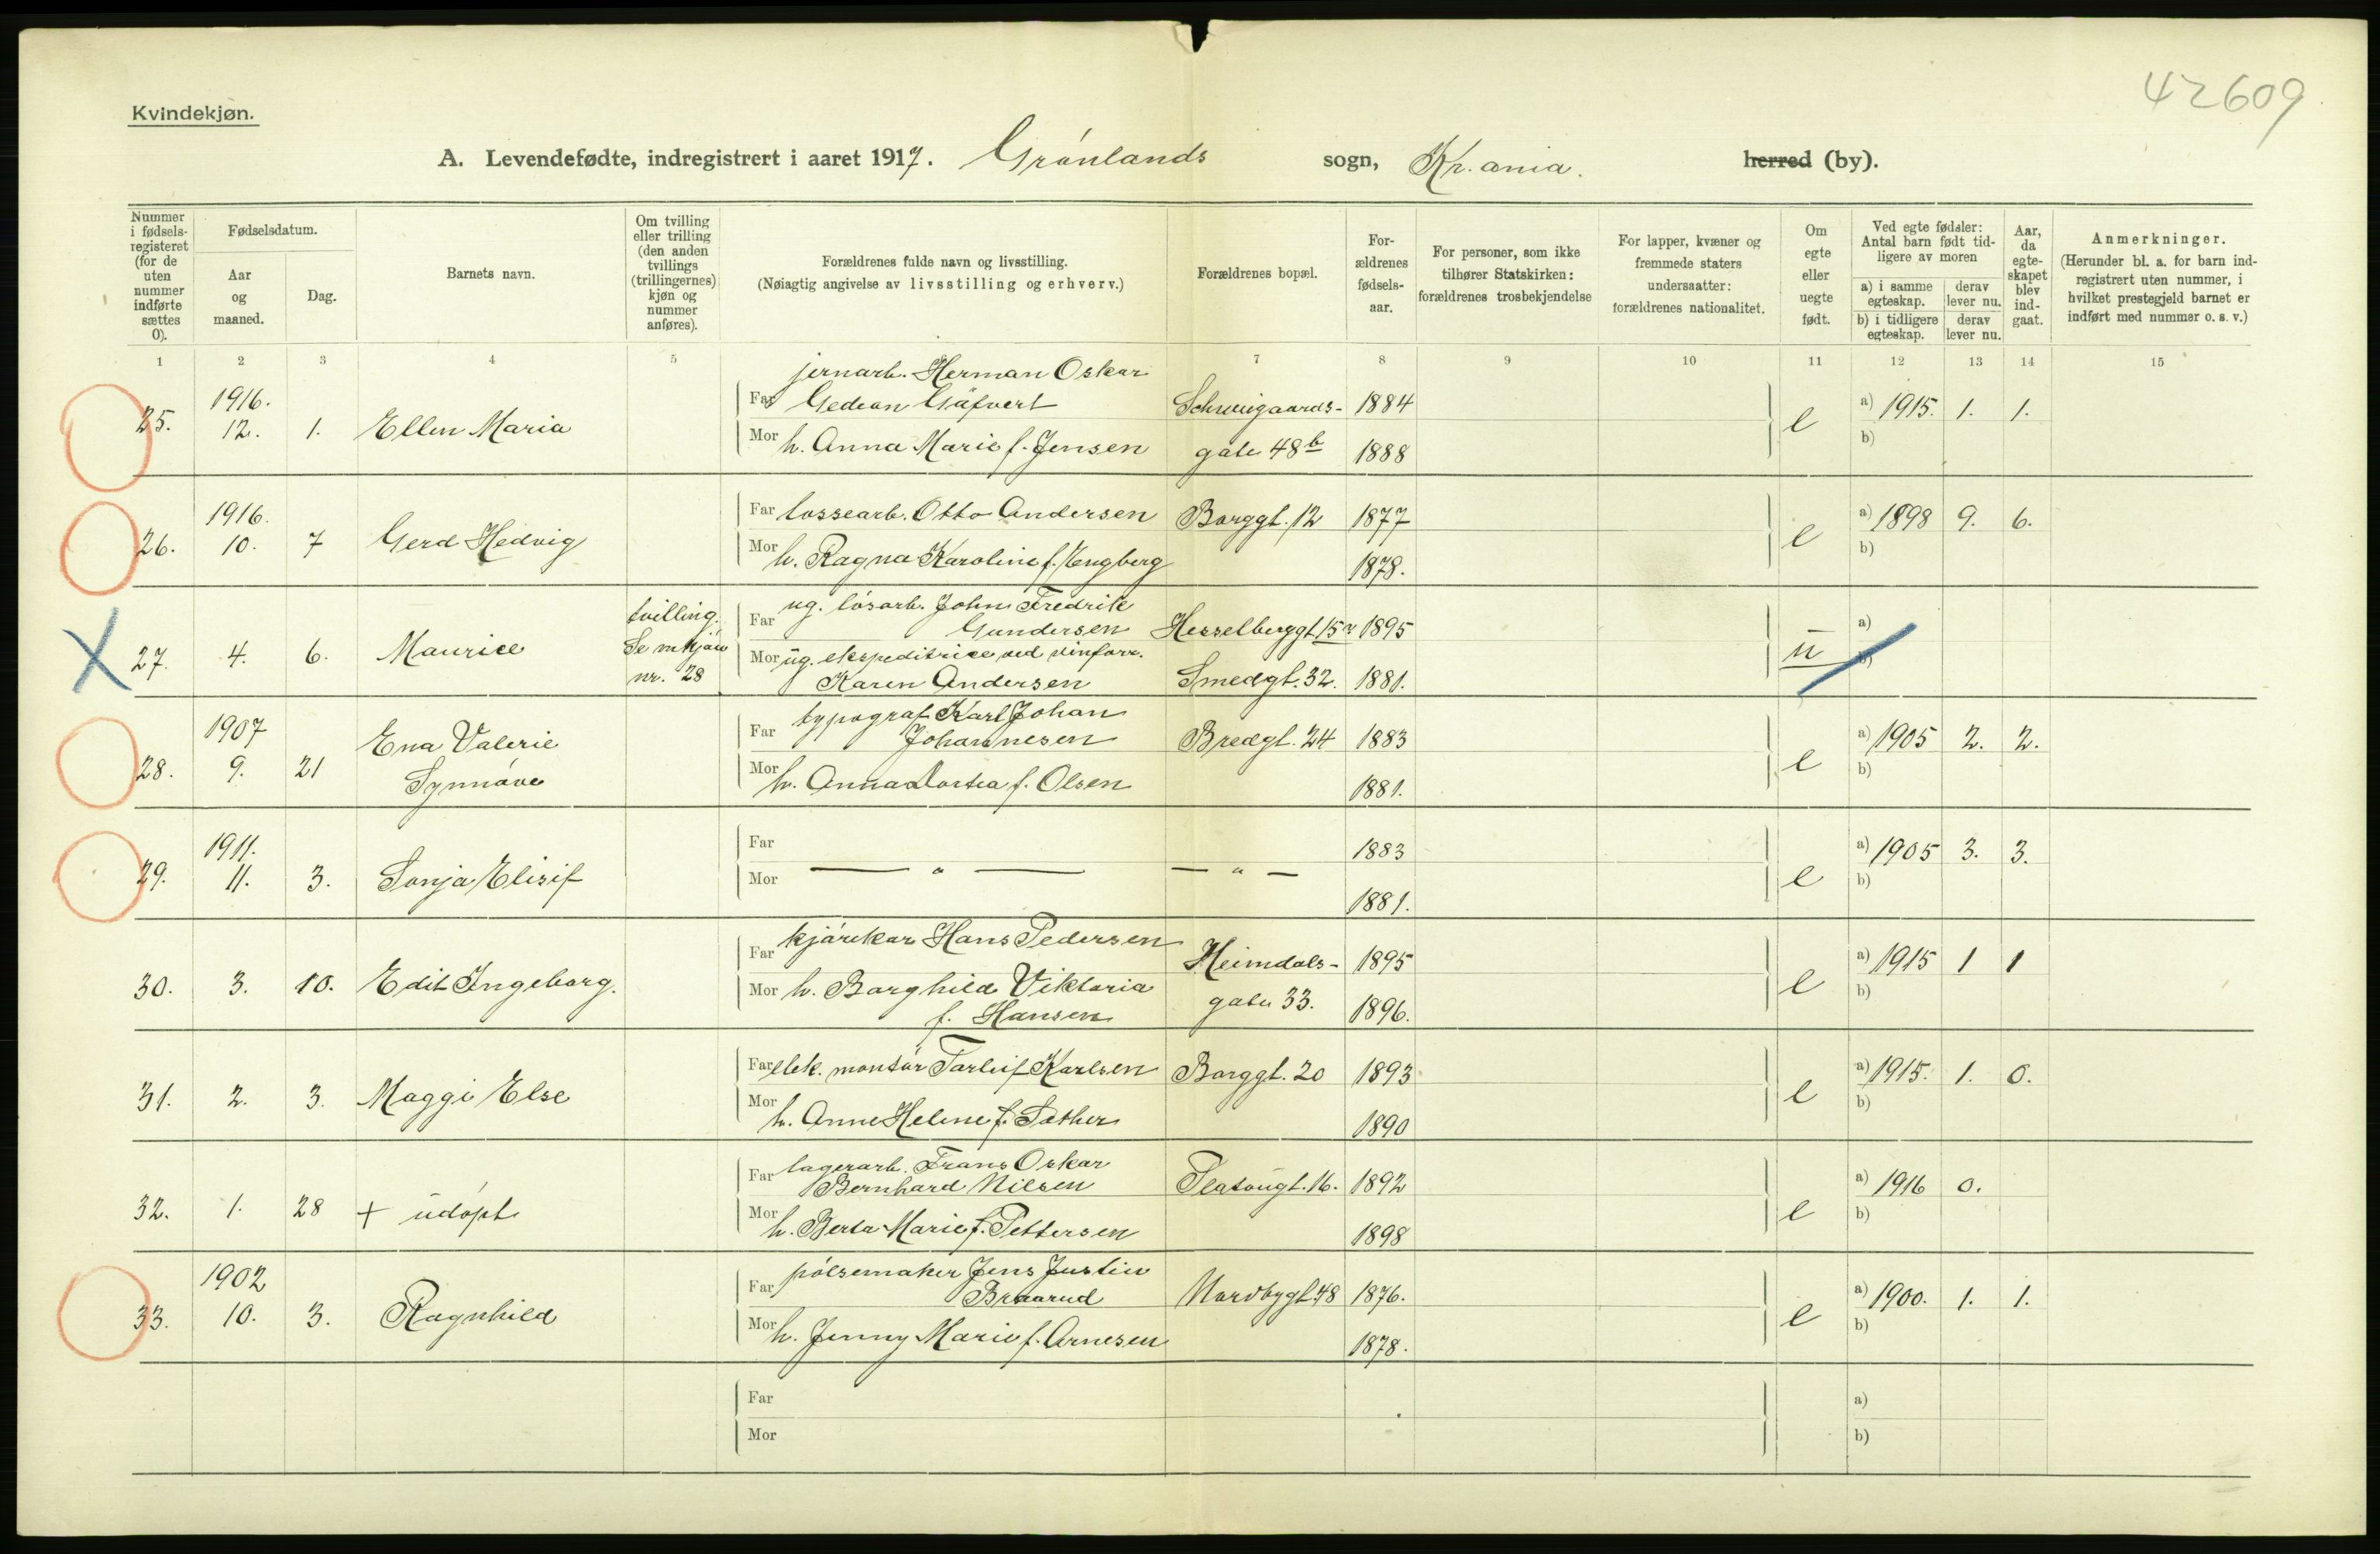 42609
Kvindekjøn.
A. Levendefødte, indregistrert i aaret 1917. Grønlands sogn, Kr.ania. herred (by).
Nummer i fødsels-registeret (for de uten nummer indførte sættes 0).
Fødselsdatum.
Aar og maaned.
Dag.
Barnets navn.
Om tvilling eller trilling (den anden tvillings (trillingernes) kjøn og nummer anføres).
Forældrenes fulde navn og livsstilling.
(Nøiagtig angivelse av livsstilling og erhverv.)
Forældrenes bopæl.
For-ældrenes fødsels-aar.
For personer, som ikke tilhører Statskirken: forældrenes trosbekjendelse
For lapper, kvæner og fremmede staters undersaatter: forældrenes nationalitet.
Om egte eller uegte født.
Ved egte fødsler: Antal barn født tid-ligere av moren
a) i samme egteskap.
derav lever nu.
b) i tidligere egteskap.
derav lever nu.
Aar, da egte-skapet blev ind-gaat.
Anmerkninger.
(Herunder bl. a. for barn ind-registrert uten nummer, i hvilket prestegjeld barnet er indført med nummer o. s. v.)
1 2 3 4 5 7 8 9 10 11 12 13 14 15
jernarb. Herman Oskar
1916. Far Gedeon Gäfvert Schweigaards- 1884 a) 1915. 1. 1.
25. 12. 1. Ellen Maria e
Mor h. Anna Marie f. Jensen gate 48b 1888 b)
1916. Far tossearb. Otto Andersen Borggt. 12 1877 a) 1898 9. 6.
26. 10. 7 Gerd Hedvig e
Mor h. Ragna Karoline f. Engberg 1878. b)
tvilling. ug. løsarb. John Fredrik
Far Gundersen Hesselberggt. 15 1895 a)
27. 4. 6. Maurice Se mkjøn Mor ug. ekspeditrice ved vinforr. u b)
nr. 28 Karen Andersen Smedgt. 32. 1881.
typograf Karl Johan
1907 Ena Valerie Far Johannesen Bredgt. 24 1883 a) 1905 2. 2.
28. 9. 21 Synnøve e
Mor h. Anna Dortea f. Olsen 1881. b)
1911. Far 1883 a) 1905 3. 3.
29. 11. 3. Sonja Elisif — " — — " — e
Mor 1881. b)
Far kjørekar Hans Pedersen Heimdals- 1895 a) 1915 1 1
30. 3. 10. Edit Ingeborg. e
Mor h. Borghild Viktoria gate 33. 1896. b)
f. Hansen
Far elek. montør Torleif Karlsen Borggt. 20 1893 a) 1915. 1. 0.
31. 2. 3. Maggi Else e
Mor h. Anne Helene f. Sæther 1890 b)
Far lagerarb. Frans Oskar
Bernhard Nilsen Platougt. 16. 1892 a) 1916 0.
32. 1. 28 + udøpt e
Mor h. Berta Marie f. Pettersen 1898 b)
pølsemaker Jens Justin
1902 Far Braarud Nordbygt. 48 1876. a) 1900. 1. 1.
33. 10. 3. Ragnhild e
Mor h. Jenny Marie f. Arnesen 1878. b)
Far a)
Mor b)